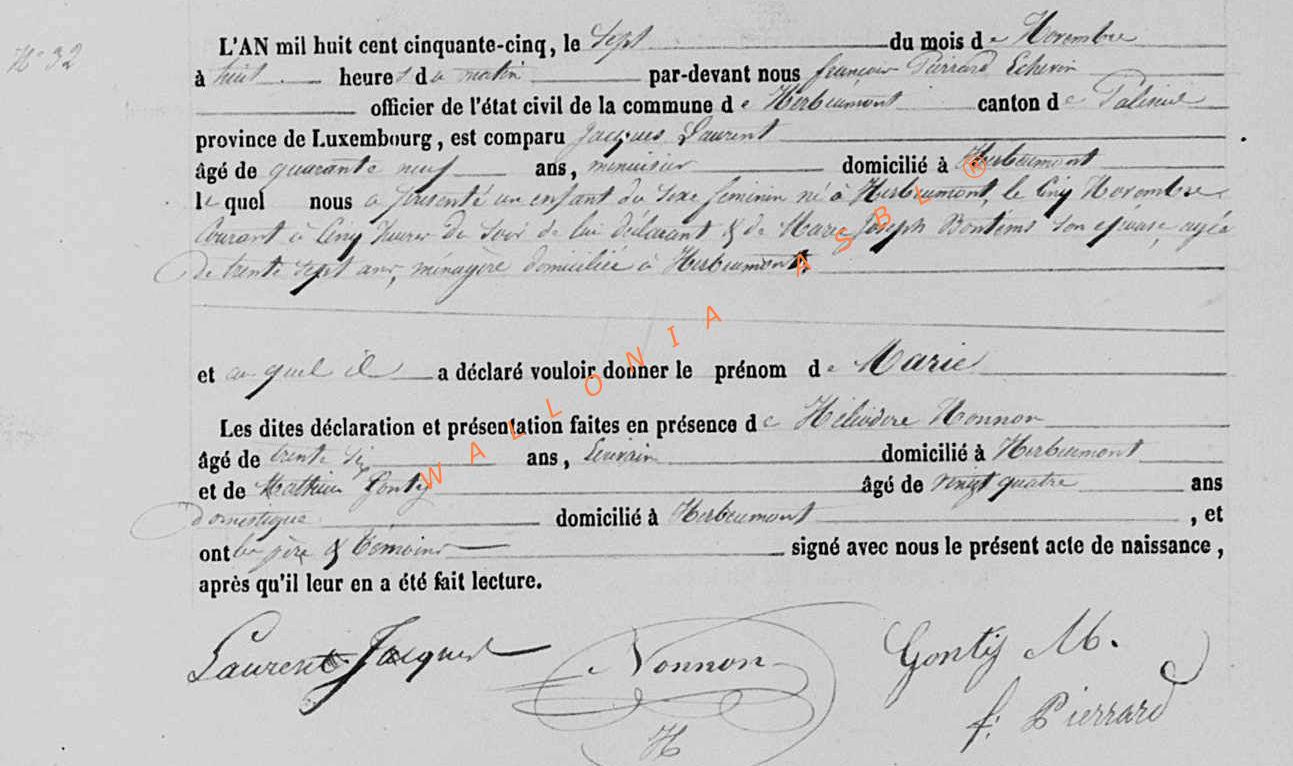 N° 32
L'AN mil huit cent cinquante-cinq, le Sept du mois de Novembre
à huit heures du matin par-devant nous françois Pierrard Echevin
officier de l'état civil de la commune de Herbeumont canton de Paliseul
province de Luxembourg, est comparu Jacques Laurent
âgé de quarante neuf ans, menuisier domicilié à Herbeumont
lequel nous a présenté un enfant du sexe feminin né à Herbeumont, le Cinq Novembre
Courant à Cinq heures du Soir de lui déclarant & de Marie Joseph Bontems son épouse, agée
de trente sept ans, ménagere domiciliée à Herbeumont
et au quel il a déclaré vouloir donner le prénom de Marie
Les dites déclaration et présentation faites en présence de Héliodore Nonnon
âgé de trente six ans, Ecrivain domicilié à Herbeumont
et de Mathieu Gontÿ âgé de vingt quatre ans
domestique domicilié à Herbeumont, et
ont les père & témoins signé avec nous le présent acte de naissance,
après qu'il leur en a été fait lecture.
Laurent Jacques Nonnon Gontÿ M.
H f. Pierrard
WALLONIA ASBL ®